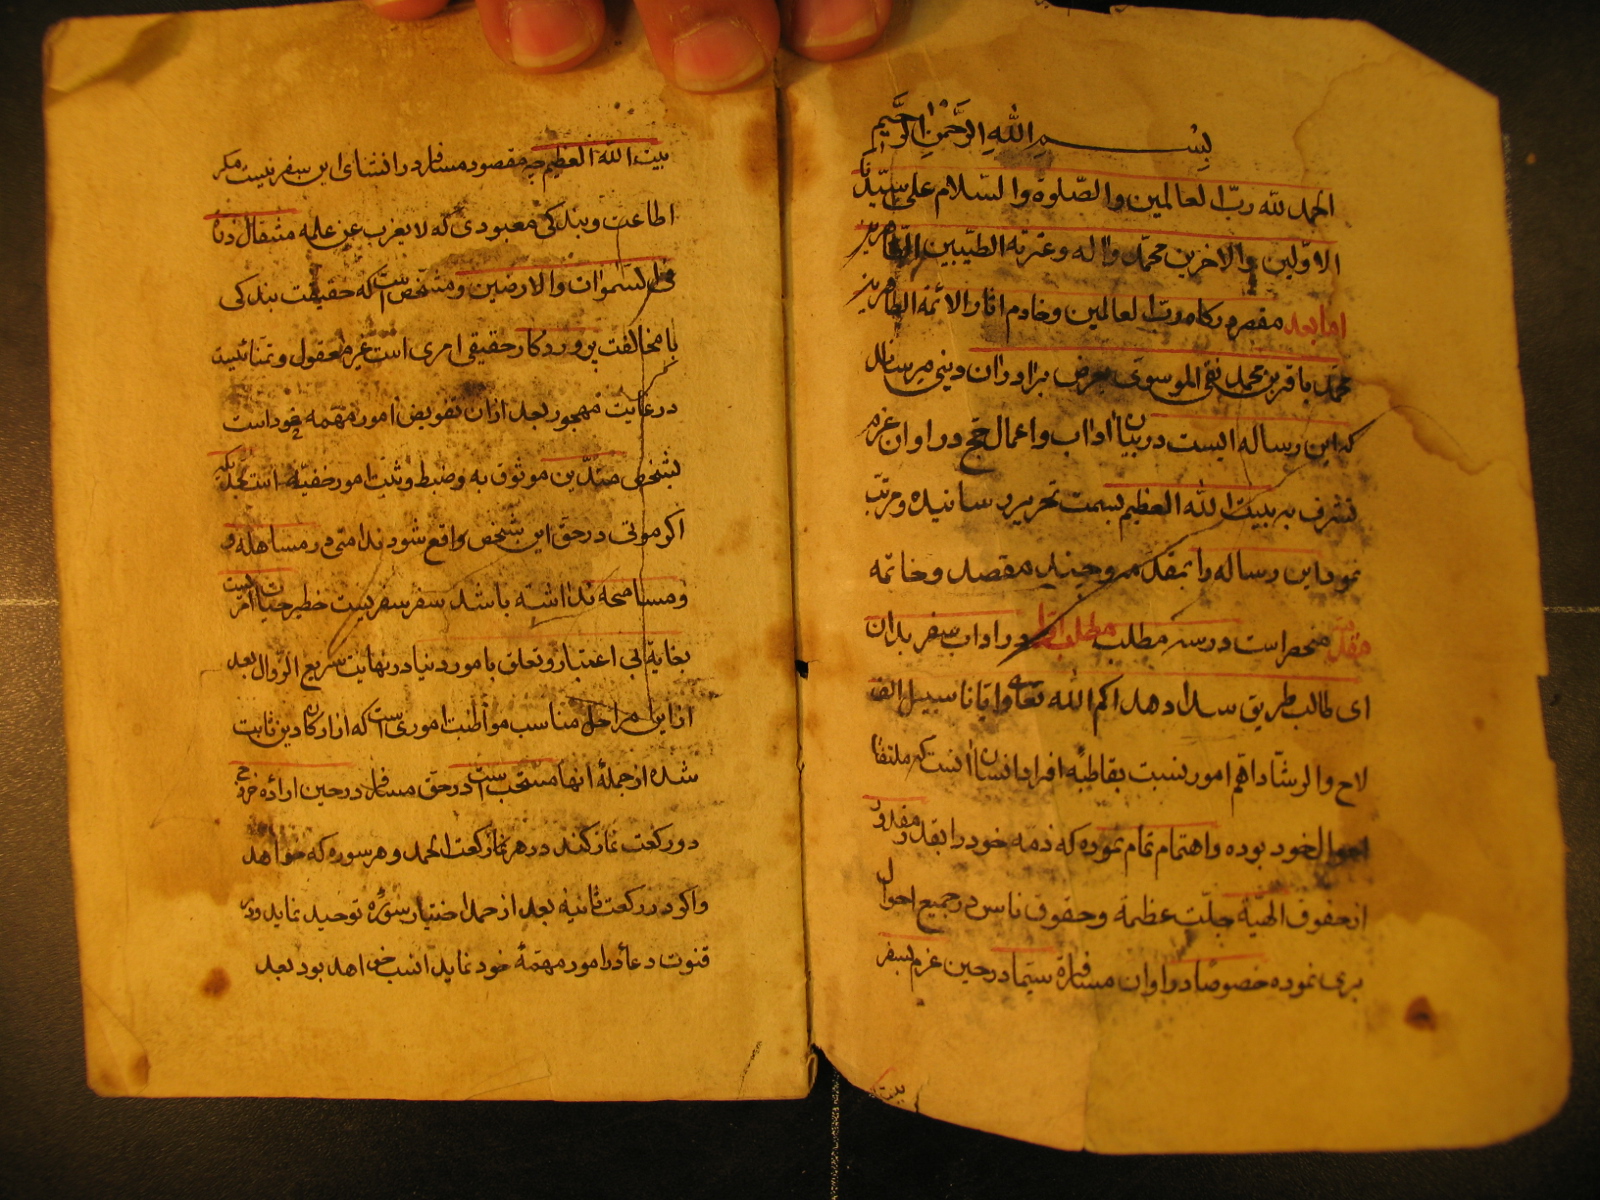 بِسْمِ اللهِ الرَّحْمنِ الرَّحيمِ
الحمد لله ربّ العالمين والصّلوة والسّلام على سيّدنا
الاوّلين والاخرين محمّد واله وعترته الطيّبين الطاهرين
اما بعد مقصر دركاه ربّ العالمين وخادم اثار الائمة الطاهرين
محمّد باقر بن محمد نقى الموسوى بعرض برادران دينى ميرساند
كه اين رساله ايست در بيان اداب واعمال حج در اوان عزم
تشرف به بيت الله العظيم بسمت تحرير رسانيده ومرتب
نمود اين رساله را بمقدمه وچند مقصد وخاتمه
مقدمه منحصر است در سه مطلب مطلب اول در اداب سفر بدان
اى طالب طريق سداد هداكم الله تعالى وايانا سبيل الف
لاح والرشاد اهم امور نسبت بقاطبه افراد انسان انست كه ملتفت
احوال خود بوده واهتمام تمام نموده كه ذمه خود را بقدر مقدور
از حقوق الهيّة جلّت عظمة وحقوق ناس در جميع احوال
برى نموده خصوصا در اوان مسافرة سيّما در حين عزم بسفر
بيت
بيت الله العظيم چه مقصود مسافر در انشاى اين سفر نيست مكر
اطاعت وبندكى معبودى كه لا يعزب عن علمه مثقال ذرة
فى السموات والارضين ومشخص است كه حقيقت بندكى
با مخالفت پروردكار حقيقى امرى است غير معقول وتمنائيست
در غايت مهجور بعد از ان تفويض امور مهمه خود است
بشخص متديّن موثوق به وضبط وثبت امور خفيّه است
اكر موتى در حق اين شخص واقع شود ندامتى در مساهله و
ومسامحه نداشته باشد سفر سفريست خطير حيات امريست
بغاية بى اعتبار وتعلق بامور دنيا در نهايت سريع الزوال بعد
از اين مراحل مناسب مواظبت امورى است كه از اركان دين ثابت
شده از جملۀ انها مستحب است در حق مسافر در حين اراده خروج
دو ركعت نماز كند در هر ركعت الحمد وهر سوره كه خواهد
واكر در ركعت ثانيه بعد از حمد اختيار سورۀ توحيد نمايد ودر
قنوت دعا در امور مهمّۀ خود نمايد انسب خواهد بود بعد